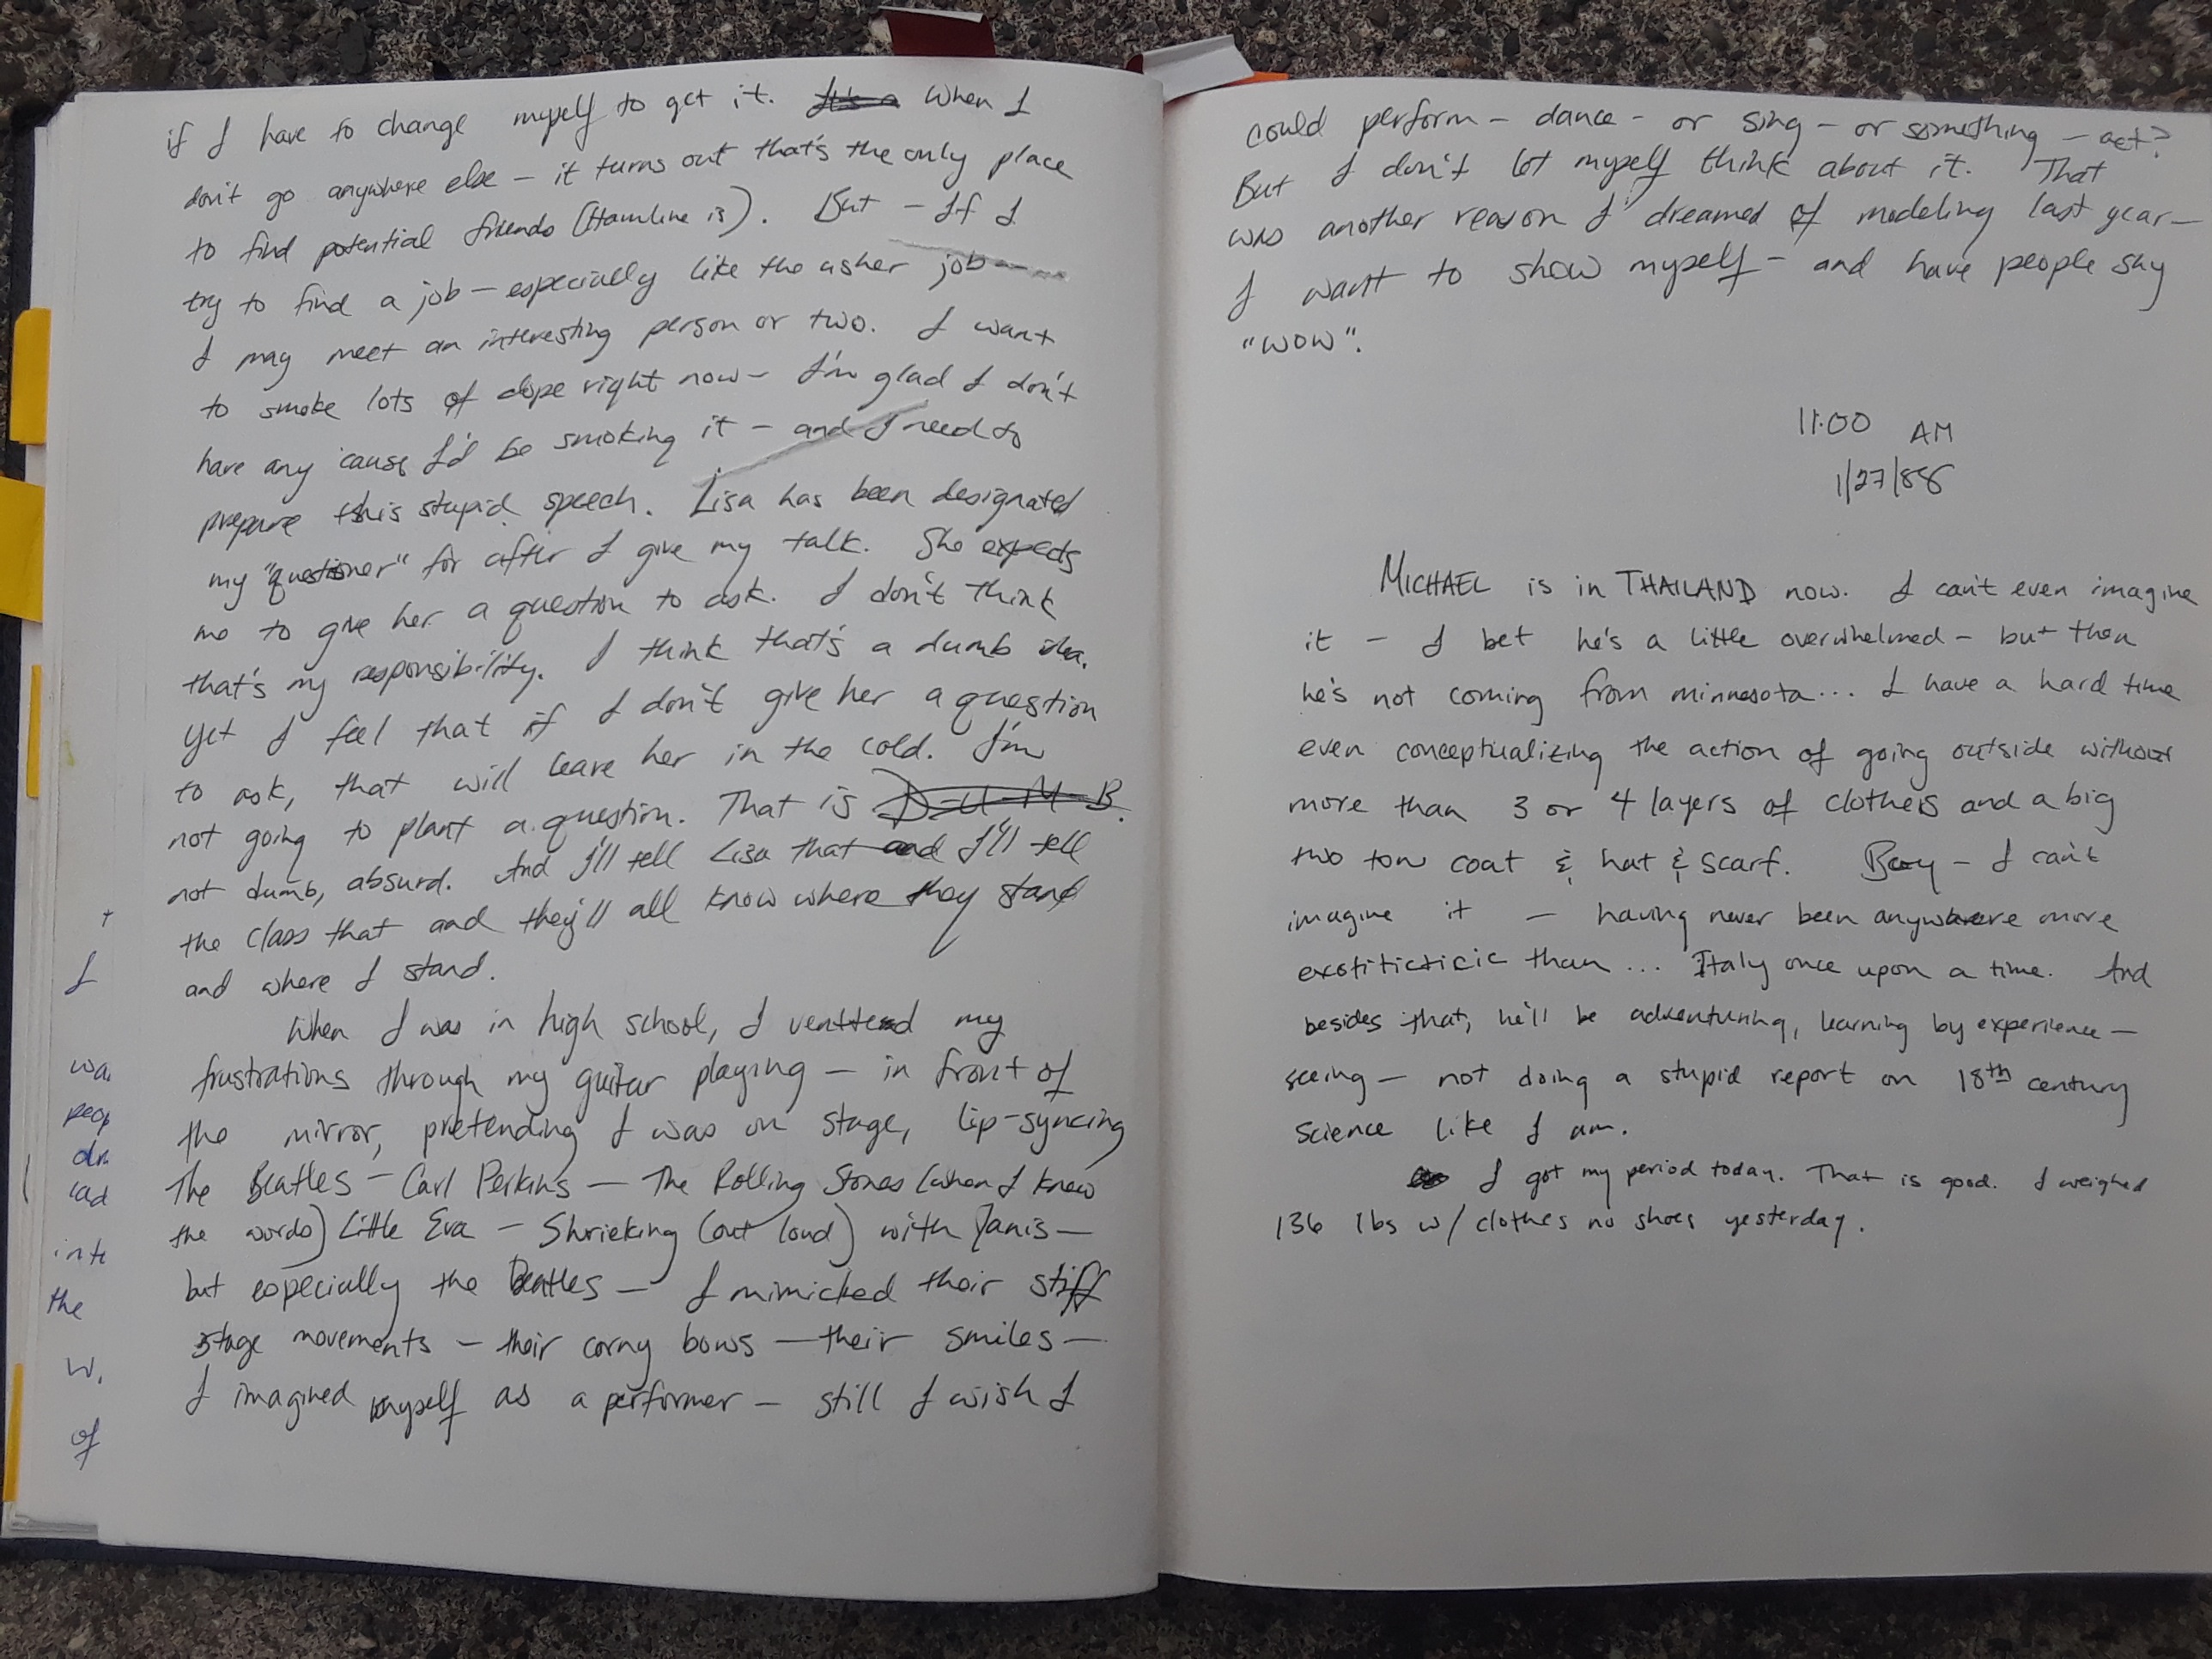 if I have to change myself to get it. It's a When I
don't go anywhere else – it turns out that's the only place
to find potential friends (Hamline is). But – If I
try to find a job – especially like the usher job –
I may meet an interesting person or two. I want
to smoke lots of dope right now – I'm glad I don't
have any 'cause I'd be smoking it – and I need to
prepare this stupid speech. Lisa has been designated
my "questioner" for after I give my talk. She expects
me to give her a question to ask. I don't think
that's my responsibility. I think that's a dumb idea.
Yet I feel that if I don't give her a question
to ask, that will leave her in the cold. I'm
not going to plant a question. That is D-U-M-B.
not dumb, absurd. And I'll tell Lisa that and I'll tell
the class that and they'll all know where they stand
and where I stand.
When I was in high school, I vented my
frustrations through my guitar playing – in front of
the mirror, pretending I was on stage, lip-syncing
The Beatles – Carl Perkins – The Rolling Stones (when I knew
the words) Little Eva – Shrieking (out loud) with Janis –
but especially the Beatles – I mimicked their stiff
stage movements – their corny bows – their smiles –
I imagined myself as a performer – still I wish I
+
I
wa
peop
dr
lad
inte
the
w.
of
could perform – dance – or sing – or something – act?
But I don't let myself think about it. That
was another reason I dreamed of modeling last year –
I want to show myself – and have people say
"WOW".
11:00 AM
1/27/88
MICHAEL is in THAILAND now. I can't even imagine
it – I bet he's a little overwhelmed – but then
he's not coming from minnesota... I have a hard time
even conceptualizing the action of going outside without
more than 3 or 4 layers of clothes and a big
two ton coat & hat & scarf. Boy – I can't
imagine it – having never been anywhere more
exotiticticic than... Italy once upon a time. And
besides that, he'll be adventuring, learning by experience –
seeing – not doing a stupid report on 18th century
science like I am.
I got my period today. That is good. I weighed
136 lbs w/ clothes no shoes yesterday.